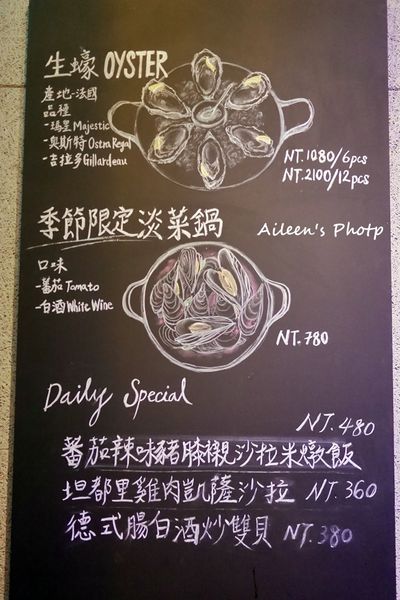 生蠔 OYSTER
產地-法國
品種
-瑪星 Majestic
-奧斯特 Ostra Regal
-吉拉多 Gillardeau
NT.1080/6pcs
NT.2100/12pcs
季節限定淡菜鍋
Aileen's Photp
口味
-蕃茄 Tomato
-白酒 White Wine
NT.780
Daily Special
NT.480
蕃茄辣味豬膝襯沙拉米燉飯
坦都里雞肉凱薩沙拉 NT.360
德式腸白酒炒雙貝 NT.380